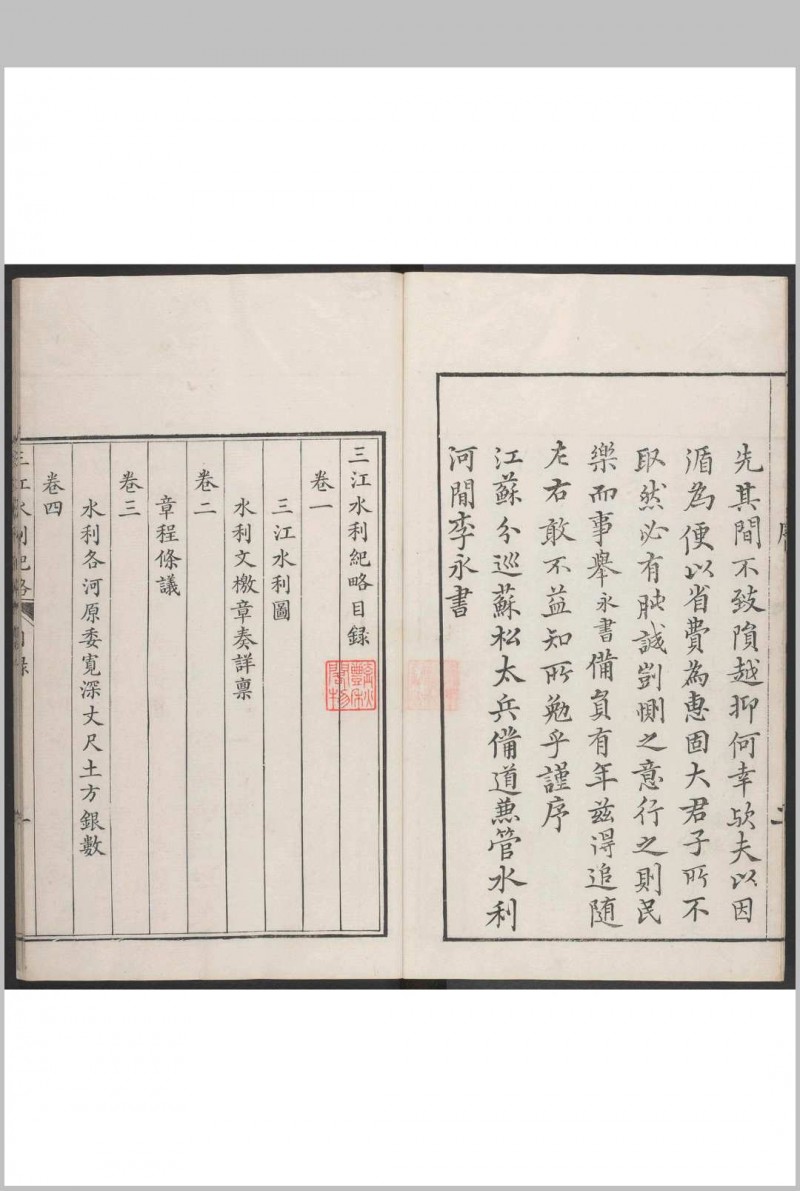 先其間不致隕越抑何幸歟夫以因
循為便以省費為惠固大君子所不
取然必有肫誠剴惻之意行之則民
樂而事舉永書備員有年茲得追隨
左右敢不益知所勉乎謹序
江蘇分巡蘇松太兵備道兼管水利
河間李永書
三江水利紀略目録
卷一
三江水利圖
卷二
水利文檄章奏詳稟
章程條議
卷三
水利各河原委寬深丈尺土方銀數
卷四
三江水利紀略
目録
一